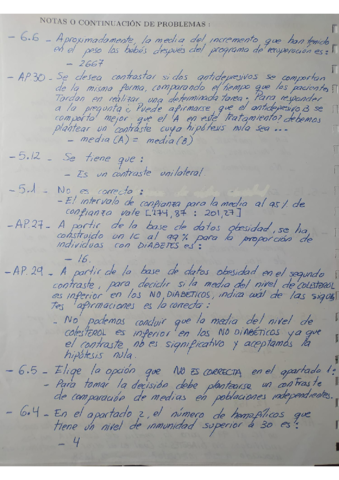 NOTAS O CONTINUACIÓN DE PROBLEMAS:
- 6.6 - Aproximadamente, la media del incremento que han tenido
en el peso los bebés después del programa de recuperación es:
- 2667
- AP 30 - Se desea contrastar si dos antidepresivos se comportan
de la misma forma, comparando el tiempo que los pacientes
tardan en realizar una determinada tarea. Para responder
a la pregunta ¿Puede afirmarse que el antidepresivo B se
comporta mejor que el A en este tratamiento? debemos
plantear un contraste cuya hipótesis nula sea ...
- media (A) = media (B)
- 5.12 - Se tiene que:
- Es un contraste unilateral
- 5.1 - No es correcto:
- El intervalo de confianza para la media al 95% de
confianza vale [174,87 : 201,27]
- AP 27 - A partir de la base de datos obesidad, se ha
construido un IC al 99% para la proporción de
individuos con DIABETES es:
- 16.
- AP 29 - A partir de la base de datos obesidad en el segundo
contraste, para decidir si la media del nivel de COLESTEROL
es inferior en los NO DIABÉTICOS, indica cuál de las siguien
tes afirmaciones es la correcta:
- No podemos concluir que la media del nivel de
COLESTEROL es inferior en los NO DIABÉTICOS ya que
el contraste no es significativo y aceptamos la
hipótesis nula.
- 6.5 - Elige la opción que NO ES CORRECTA en el apartado 1:
- Para tomar la decisión debe plantearse un contraste
de comparación de medias en poblaciones independientes.
- 6.4 - En el apartado 2, el número de hemofílicos que
tiene un nivel de inmunidad superior a 30 es:
- 4